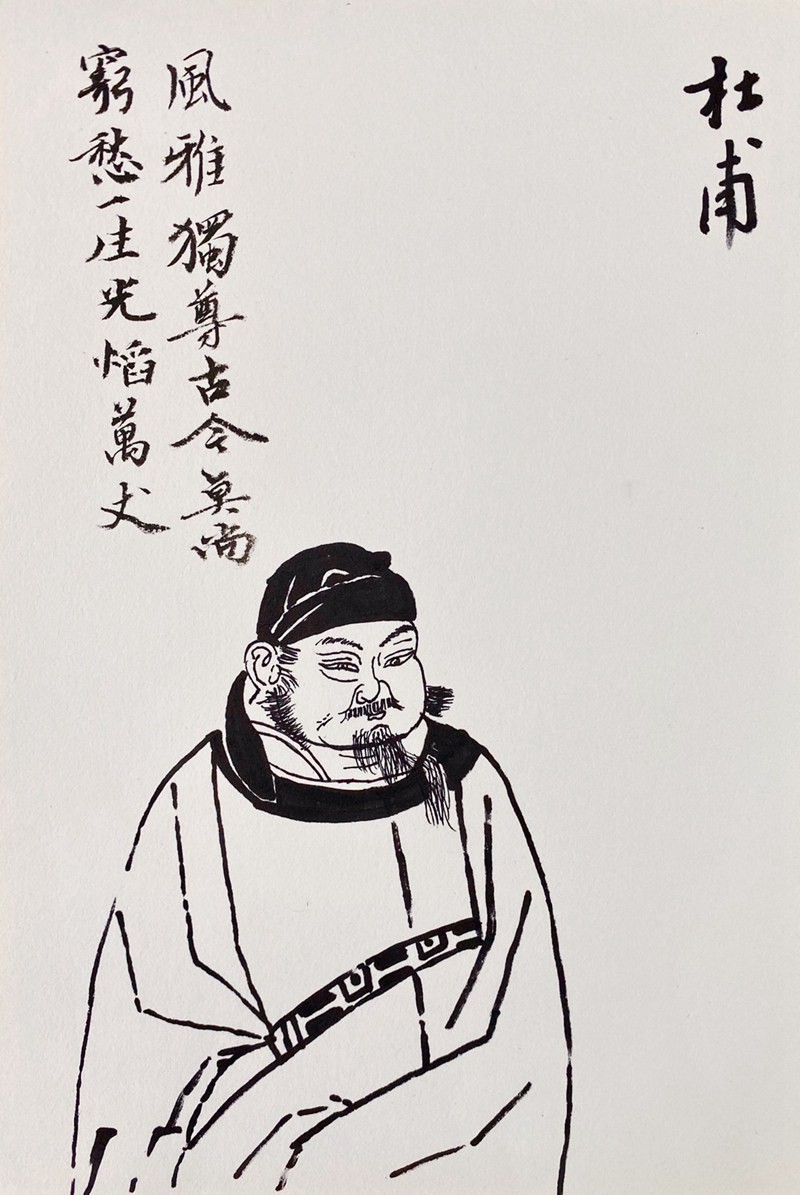 杜甫
風雅獨尊古今莫尚
窮愁一生光焰萬丈